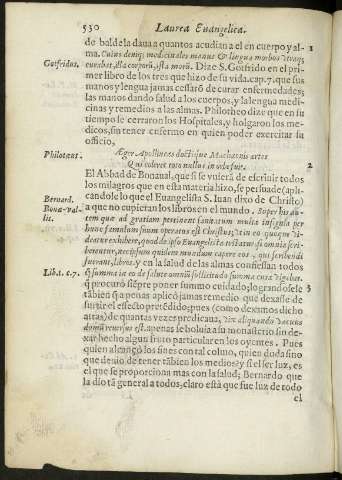 530
Laurea Euangelica.
de balde la daua a quantos acudian a el en cuerpo y al-
ma. Cuius deniq; medicinales manus & lingua morbos vtrosq;
curabat, illa corporũ, ista morũ. Dize S. Gotfrido en el pri
mer libro de los tres que hizo de su vida. cap. 7. que sus
manos y lengua jamas cessarõ de curar enfermedades;
las manos dando salud a los cuerpos, y la lengua medi-
cinas y remedios a las almas. Philotheo dize que en su
tiempo se cerraron los Hospitales, y holgaron los me-
dicos, sin tener enfermo en quien poder exercitar su
officio,
Gotfridus.
1
Ægre Apollineas doctusque Machaonis artes
Qui coleret toto nullus in vrbe fuit.
Philot.nat.
2
El Abbad de Bonaual, que si se vuiera de escriuir todos
los milagros que en esta materia hizo, se persuade (apli
candole lo que el Euangelista S. Iuan dixo de Christo)
a que no cupieran los libros en el mundo. Super his au-
tem quæ ad gratiam pertinent sanitatum multa insignia per
hunc famulum suum operatus est Christus; & in eo quoque vi-
deatur exhibere, quod de ipso Euangelista testatur: si omnia scri-
berentur, nec ipsum quidem mundum capere eos, qui scribendi
fuerant, libros. y en la salud de las almas confiessan todos
Bernard.
Bona-val-
lis.
Lib.1. c.7.
q̃ summa in eo de salute omniũ sollicitudo summa cura vigebat.
q̃ procurò siẽpre poner summo cuidado; lograndosele
tãbien q̃ a penas aplicó jamas remedio que dexasse de
surtir el effecto pretẽdido; pues (como dexamos dicho
atras) de quantas vezes predicaua, vix aliquando vacuus
domũ reuersus est. apenas se boluia a su monasterio sin de-
xar hecho algun fruto particular en los oyentes. Pues
quien alcançó los fines con tal colmo, quien duda sino
que deuio de tener tãbien los medios? y si el ser luz, es
el que se proporciona mas con la salud; Bernardo que
la dio tã general a todos, claro està que fue luz de todo
3
el